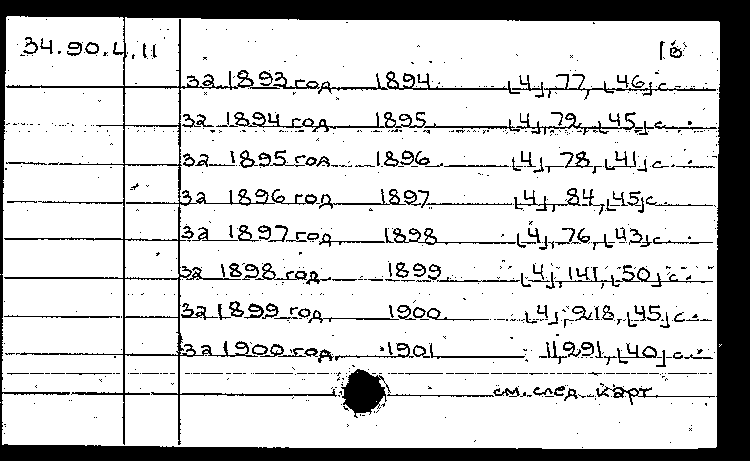 34.90.4.11 18
за 1893 год 1894 [4], 77, [46] с.
за 1894 год 1895. [4], 79, [45] с.
за 1895 год 1896. [4], 78, [41] с.
за 1896 год 1897. [4], 84, [45] с.
за 1897 год. 1898 [4], 76, [43] с.
за 1898 год. 1899. [4], 141, [50] с.
за 1899 год. 1900. [4], 218, [45] с.
за 1900 год. 1901 11, 291, [40] с.
см. след. карт.